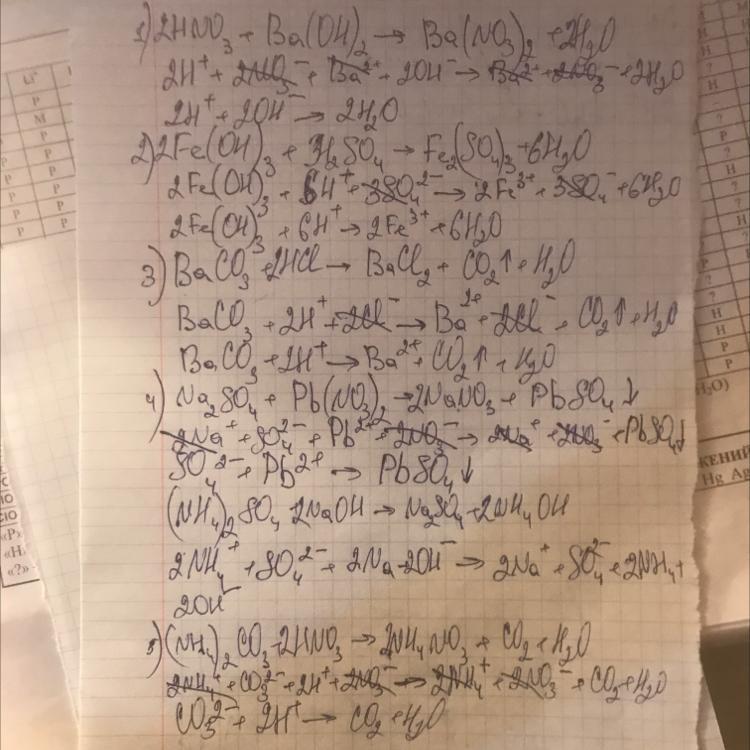 1) 2HNO₃ + Ba(OH)₂ → Ba(NO₃)₂ + 2H₂O
2H⁺ + 2NO₃⁻ + Ba²⁺ + 2OH⁻ → Ba²⁺ + 2NO₃⁻ + 2H₂O
2H⁺ + 2OH⁻ → 2H₂O
2) 2Fe(OH)₃ + 3H₂SO₄ → Fe₂(SO₄)₃ + 6H₂O
2Fe(OH)₃ + 6H⁺ + 3SO₄²⁻ → 2Fe³⁺ + 3SO₄⁻ + 6H₂O
2Fe(OH)₃ + 6H⁺ → 2Fe³⁺ + 6H₂O
3) BaCO₃ + 2HCl → BaCl₂ + CO₂↑ + H₂O
BaCO₃ + 2H⁺ + 2Cl⁻ → Ba²⁺ + 2Cl⁻ + CO₂↑ + H₂O
BaCO₃ + 2H⁺ → Ba²⁺ + CO₂↑ + H₂O
4) Na₂SO₄ + Pb(NO₃)₂ → 2NaNO₃ + PbSO₄↓
2Na⁺ + SO₄²⁻ + Pb²⁺ + 2NO₃⁻ → 2Na⁺ + 2NO₃⁻ + PbSO₄↓
SO₄²⁻ + Pb²⁺ → PbSO₄↓
(NH₄)₂SO₄ + 2NaOH → Na₂SO₄ + 2NH₄OH
2NH₄⁺ + SO₄²⁻ + 2Na + 2OH⁻ → 2Na⁺ + SO₄²⁻ + 2NH₄ +
2OH⁻
5) (NH₄)₂CO₃ + 2HNO₃ → 2NH₄NO₃ + CO₂ + H₂O
2NH₄⁺ + CO₃²⁻ + 2H⁺ + 2NO₃⁻ → 2NH₄⁺ + 2NO₃⁻ + CO₂ + H₂O
CO₃²⁻ + 2H⁺ → CO₂ + H₂O
Li⁺
Р
М
Р
Р
Р
Р
Р
«Р»
«Н»
«?» -
Н
?
Н
Р
H₂O)
КЕНИЙ
Hg Ag